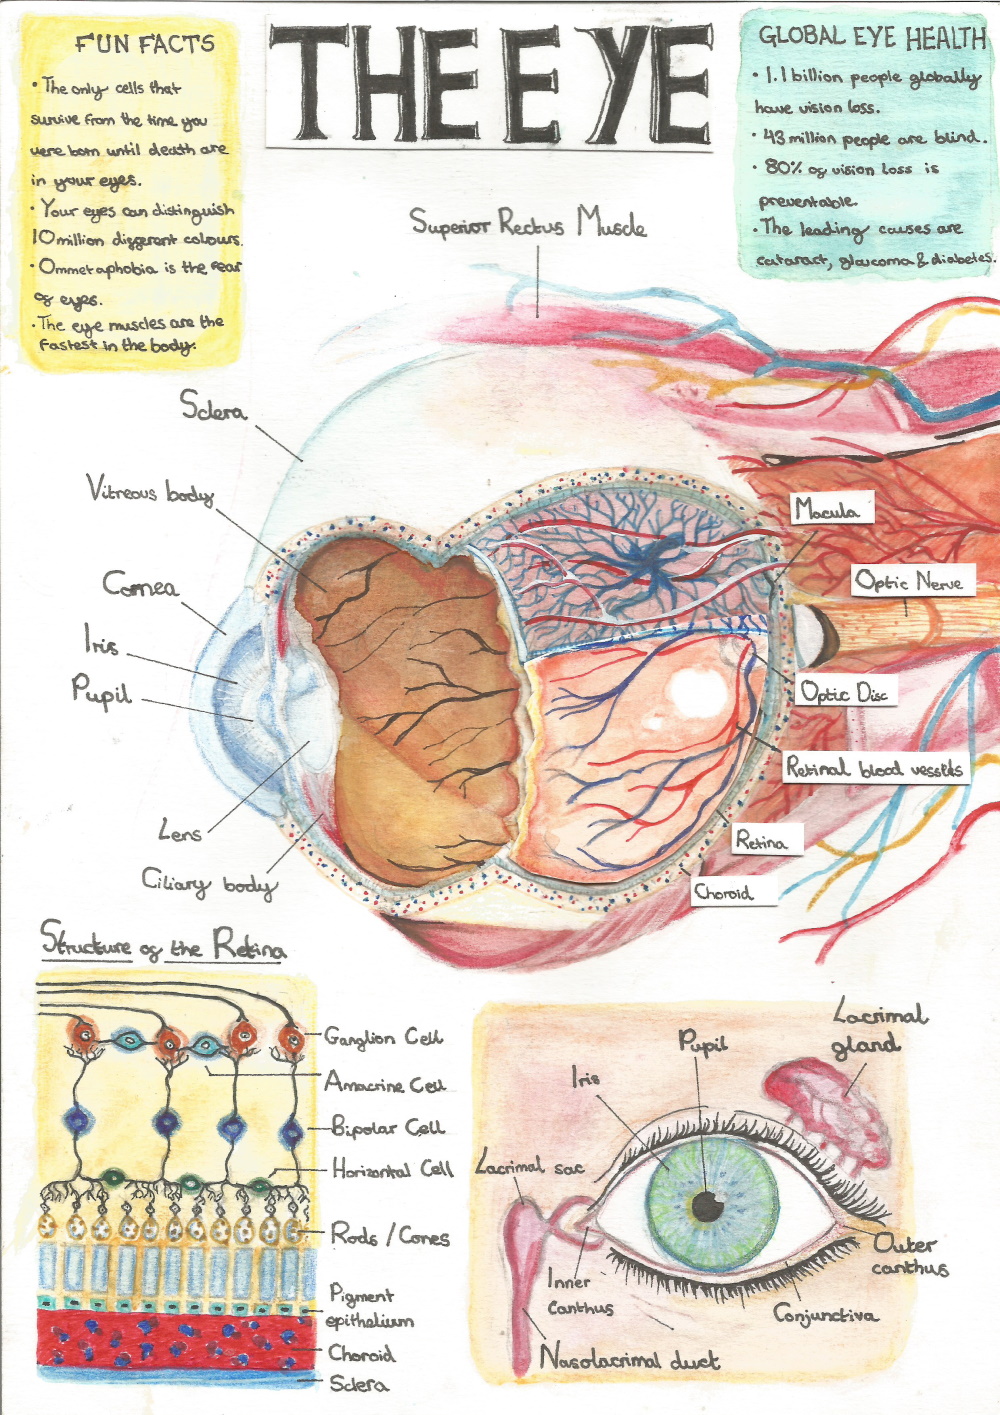 FUN FACTS
• The only cells that
survive from the time you
were born until death are
in your eyes.
• Your eyes can distinguish
10 million different colours.
• Ommetaphobia is the fear
of eyes.
• The eye muscles are the
fastest in the body.
THE EYE
GLOBAL EYE HEALTH
• 1.1 billion people globally
have vision loss.
• 43 million people are blind.
• 80% of vision loss is
preventable.
• The leading causes are
cataract, glaucoma & diabetes.
Superior Rectus Muscle
Sclera
Vitreous body
Cornea
Iris
Pupil
Lens
Ciliary body
Macula
Optic Nerve
Optic Disc
Retinal blood vessels
Retina
Choroid
Structure of the Retina
Ganglion Cell
Amacrine Cell
Bipolar Cell
Horizontal Cell
Rods / Cones
Pigment
epithelium
Choroid
Sclera
Lacrimal
gland
Pupil
Iris
Lacrimal sac
Inner
canthus
Outer
canthus
Conjunctiva
Nasolacrimal duct